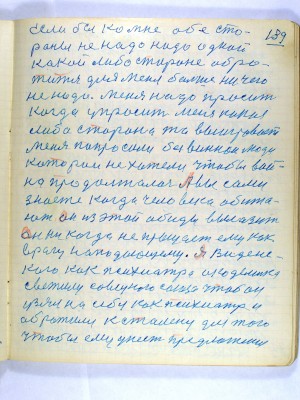 189
если бы ко мне обе сто-
роны не надо надо одной
какой либо стороне обра-
тится для меня больше ничего
не надо. Меня надо просит
когда упросит меня какая
либо сторона та выигрывает
меня попросили бы воинам люди
которые не хотели чтобы вой-
на продолжалас А вы сами
знаете когда человека обижа-
ют он из этой обиды вылазит
он никогда не прощает ему как
врагу нападающему. Я Виденс-
кого как психиатра академика
светилу советского союза чтобы он
взял на себя как психиатр и
обратился к сталену для того
чтобы ему учест предложения